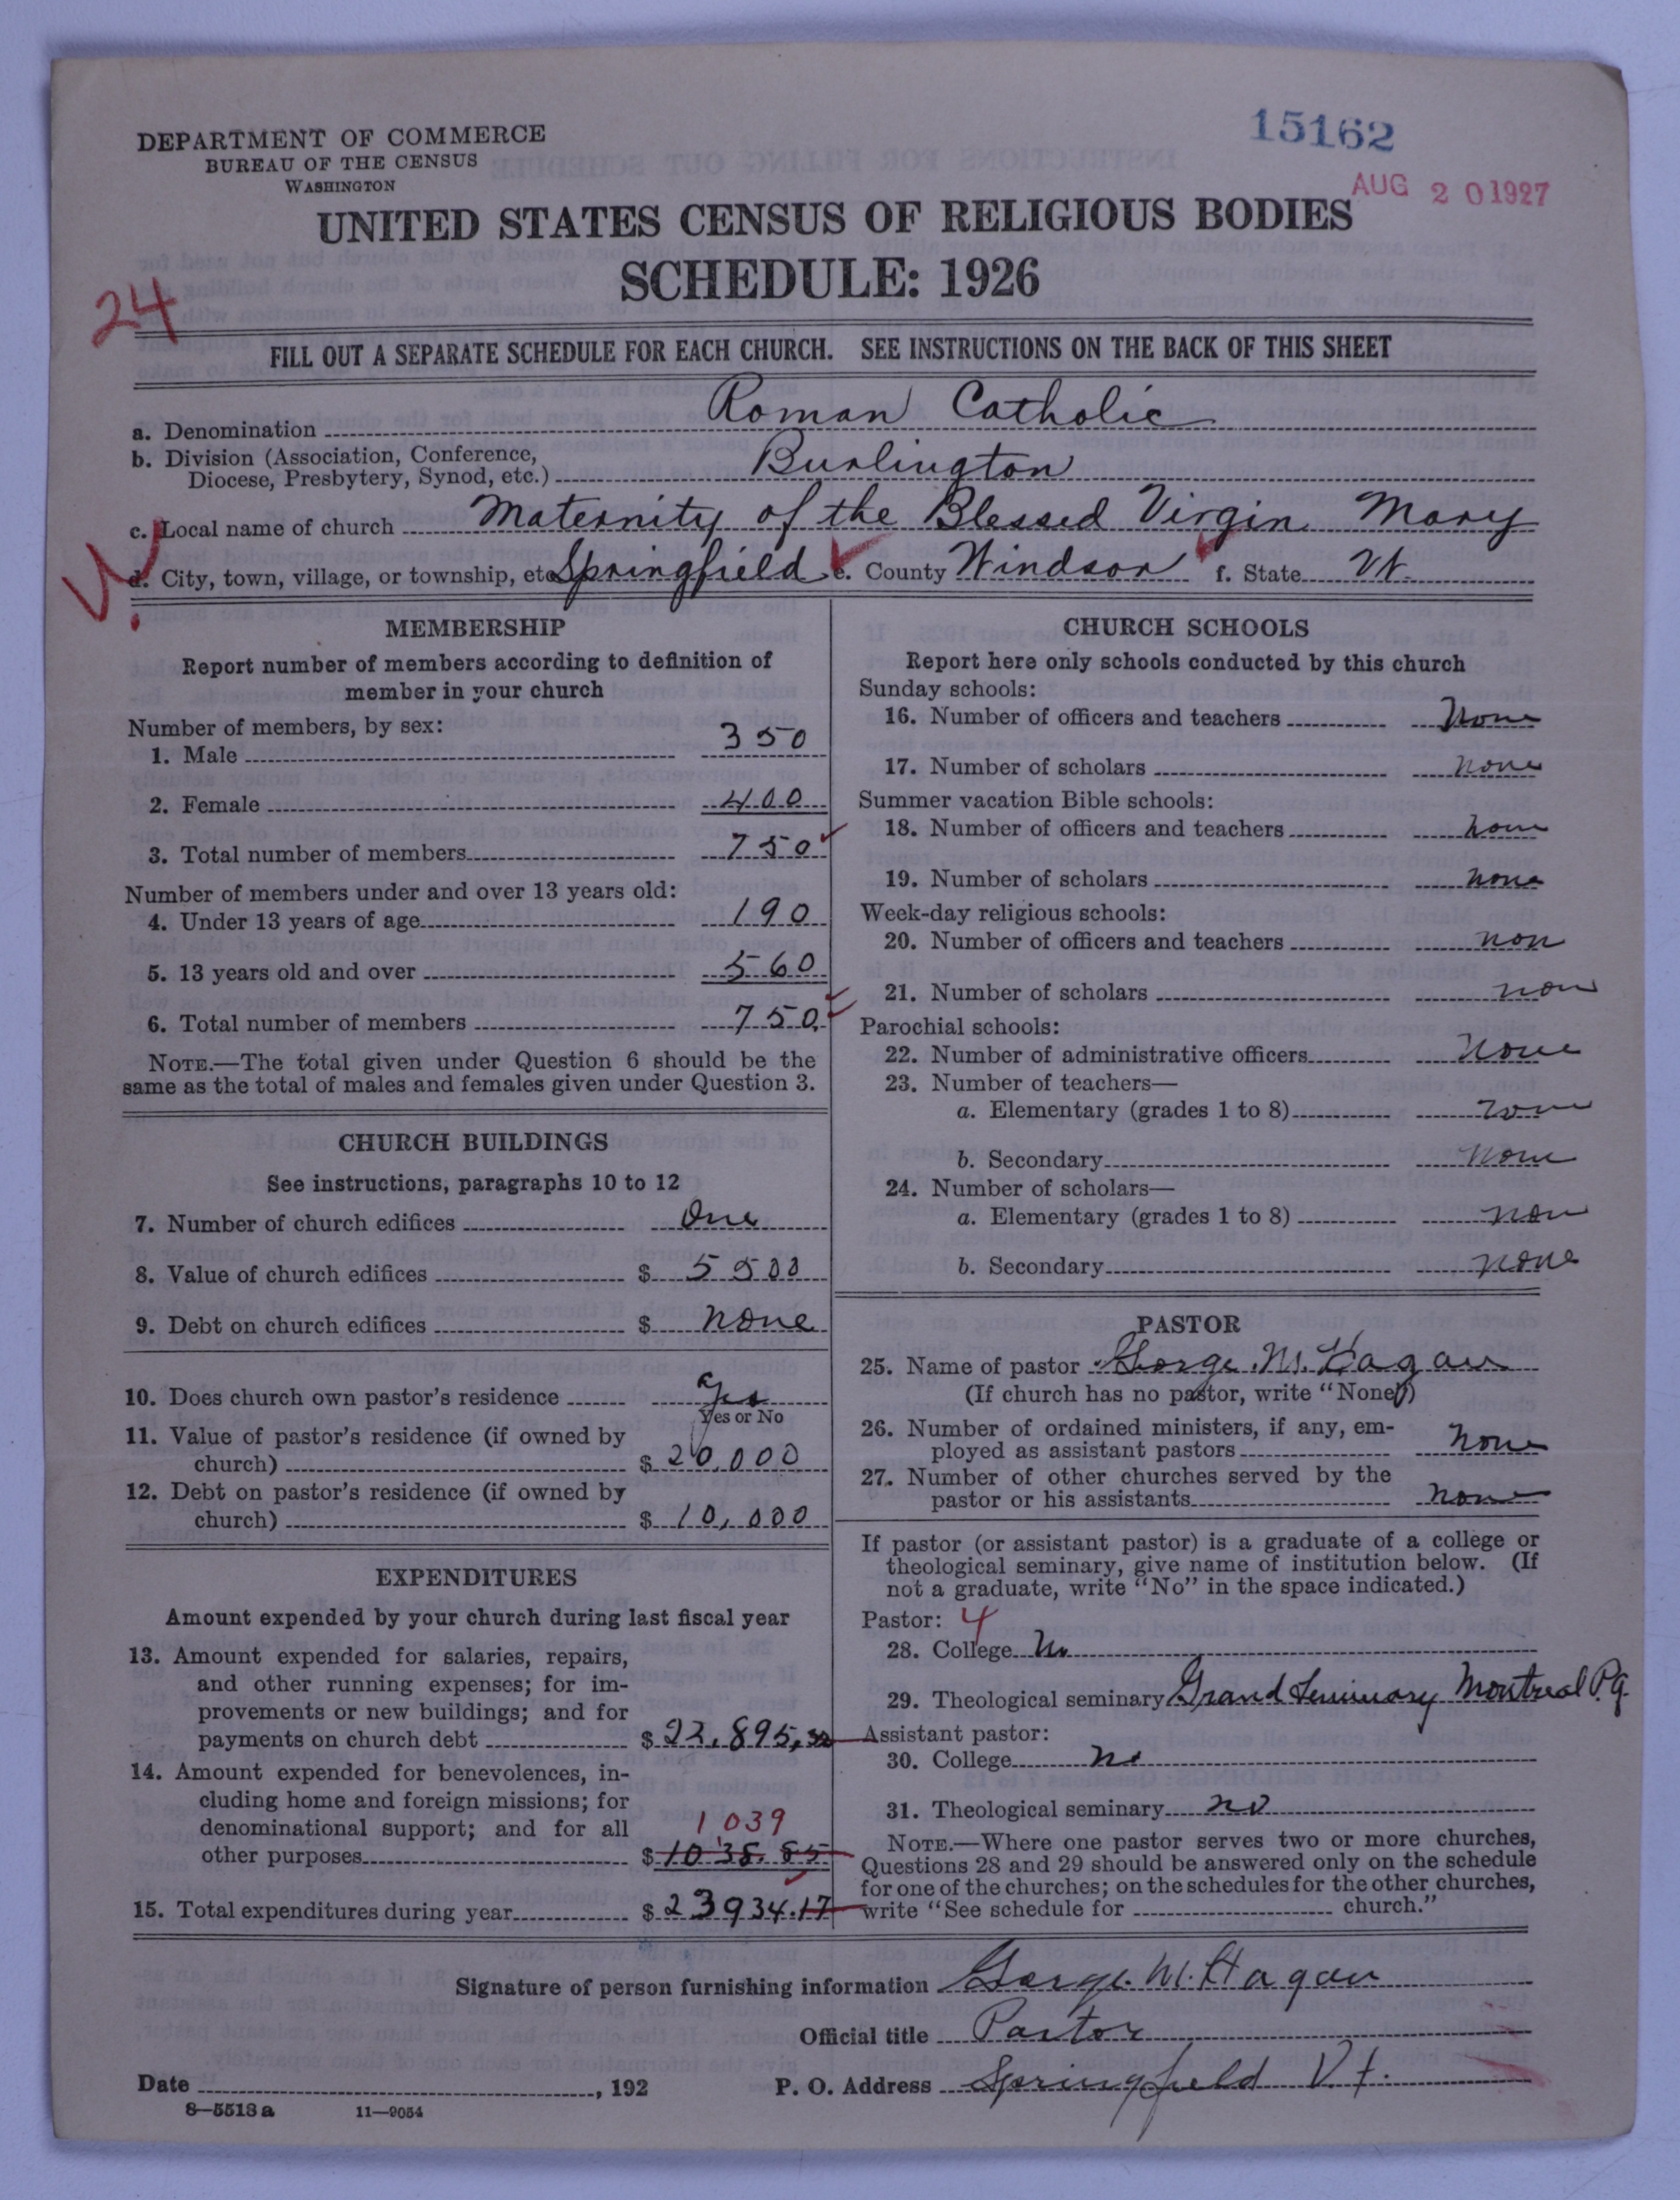 DEPARTMENT OF COMMERCE
BUREAU OF THE CENSUS
WASHINGTON
15162
AUG 20 1927
UNITED STATES CENSUS OF RELIGIOUS BODIES
SCHEDULE: 1926
24
FILL OUT A SEPARATE SCHEDULE FOR EACH CHURCH. SEE INSTRUCTIONS ON THE BACK OF THIS SHEET
a. Denomination Roman Catholic
b. Division (Association, Conference,
Diocese, Presbytery, Synod, etc.) Burlington
c. Local name of church Maternity of the Blessed Virgin Mary
d. City, town, village, or township, etc. Springfield e. County Windsor f. State Vt.
MEMBERSHIP
Report number of members according to definition of
member in your church
Number of members, by sex:
1. Male 350
2. Female 400
3. Total number of members 750
Number of members under and over 13 years old:
4. Under 13 years of age 190
5. 13 years old and over 560
6. Total number of members 750
NOTE.—The total given under Question 6 should be the
same as the total of males and females given under Question 3.
CHURCH BUILDINGS
See instructions, paragraphs 10 to 12
7. Number of church edifices One
8. Value of church edifices $ 5500
9. Debt on church edifices $ none
10. Does church own pastor's residence Yes
Yes or No
11. Value of pastor's residence (if owned by
church) $ 20,000
12. Debt on pastor's residence (if owned by
church) $ 10,000
EXPENDITURES
Amount expended by your church during last fiscal year
13. Amount expended for salaries, repairs,
and other running expenses; for im-
provements or new buildings; and for
payments on church debt $ 22,895,32
14. Amount expended for benevolences, in-
cluding home and foreign missions; for
denominational support; and for all
1039
other purposes $ 1038.85
15. Total expenditures during year $ 23934.17
CHURCH SCHOOLS
Report here only schools conducted by this church
Sunday schools:
16. Number of officers and teachers None
17. Number of scholars none
Summer vacation Bible schools:
18. Number of officers and teachers none
19. Number of scholars none
Week-day religious schools:
20. Number of officers and teachers non
21. Number of scholars non
Parochial schools:
22. Number of administrative officers None
23. Number of teachers—
a. Elementary (grades 1 to 8) none
b. Secondary None
24. Number of scholars—
a. Elementary (grades 1 to 8) non
b. Secondary none
PASTOR
25. Name of pastor George M. Hagan
(If church has no pastor, write "None")
26. Number of ordained ministers, if any, em-
ployed as assistant pastors None
27. Number of other churches served by the
pastor or his assistants none
If pastor (or assistant pastor) is a graduate of a college or
theological seminary, give name of institution below. (If
not a graduate, write "No" in the space indicated.)
Pastor: 4
28. College No
29. Theological seminary Grand Seminary Montreal P.Q.
Assistant pastor:
30. College no
31. Theological seminary no
NOTE.—Where one pastor serves two or more churches,
Questions 28 and 29 should be answered only on the schedule
for one of the churches; on the schedules for the other churches,
write "See schedule for church."
Signature of person furnishing information George M. Hagan
Official title Pastor
Date , 192 P. O. Address Springfield Vt.
8—5518 a 11—9054